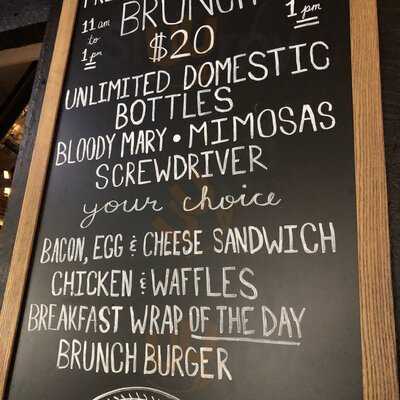 BRUNCH
11am
to
1pm
1pm
$20
UNLIMITED DOMESTIC
BOTTLES
BLOODY MARY • MIMOSAS
SCREWDRIVER
your choice
BACON, EGG & CHEESE SANDWICH
CHICKEN & WAFFLES
BREAKFAST WRAP OF THE DAY
BRUNCH BURGER